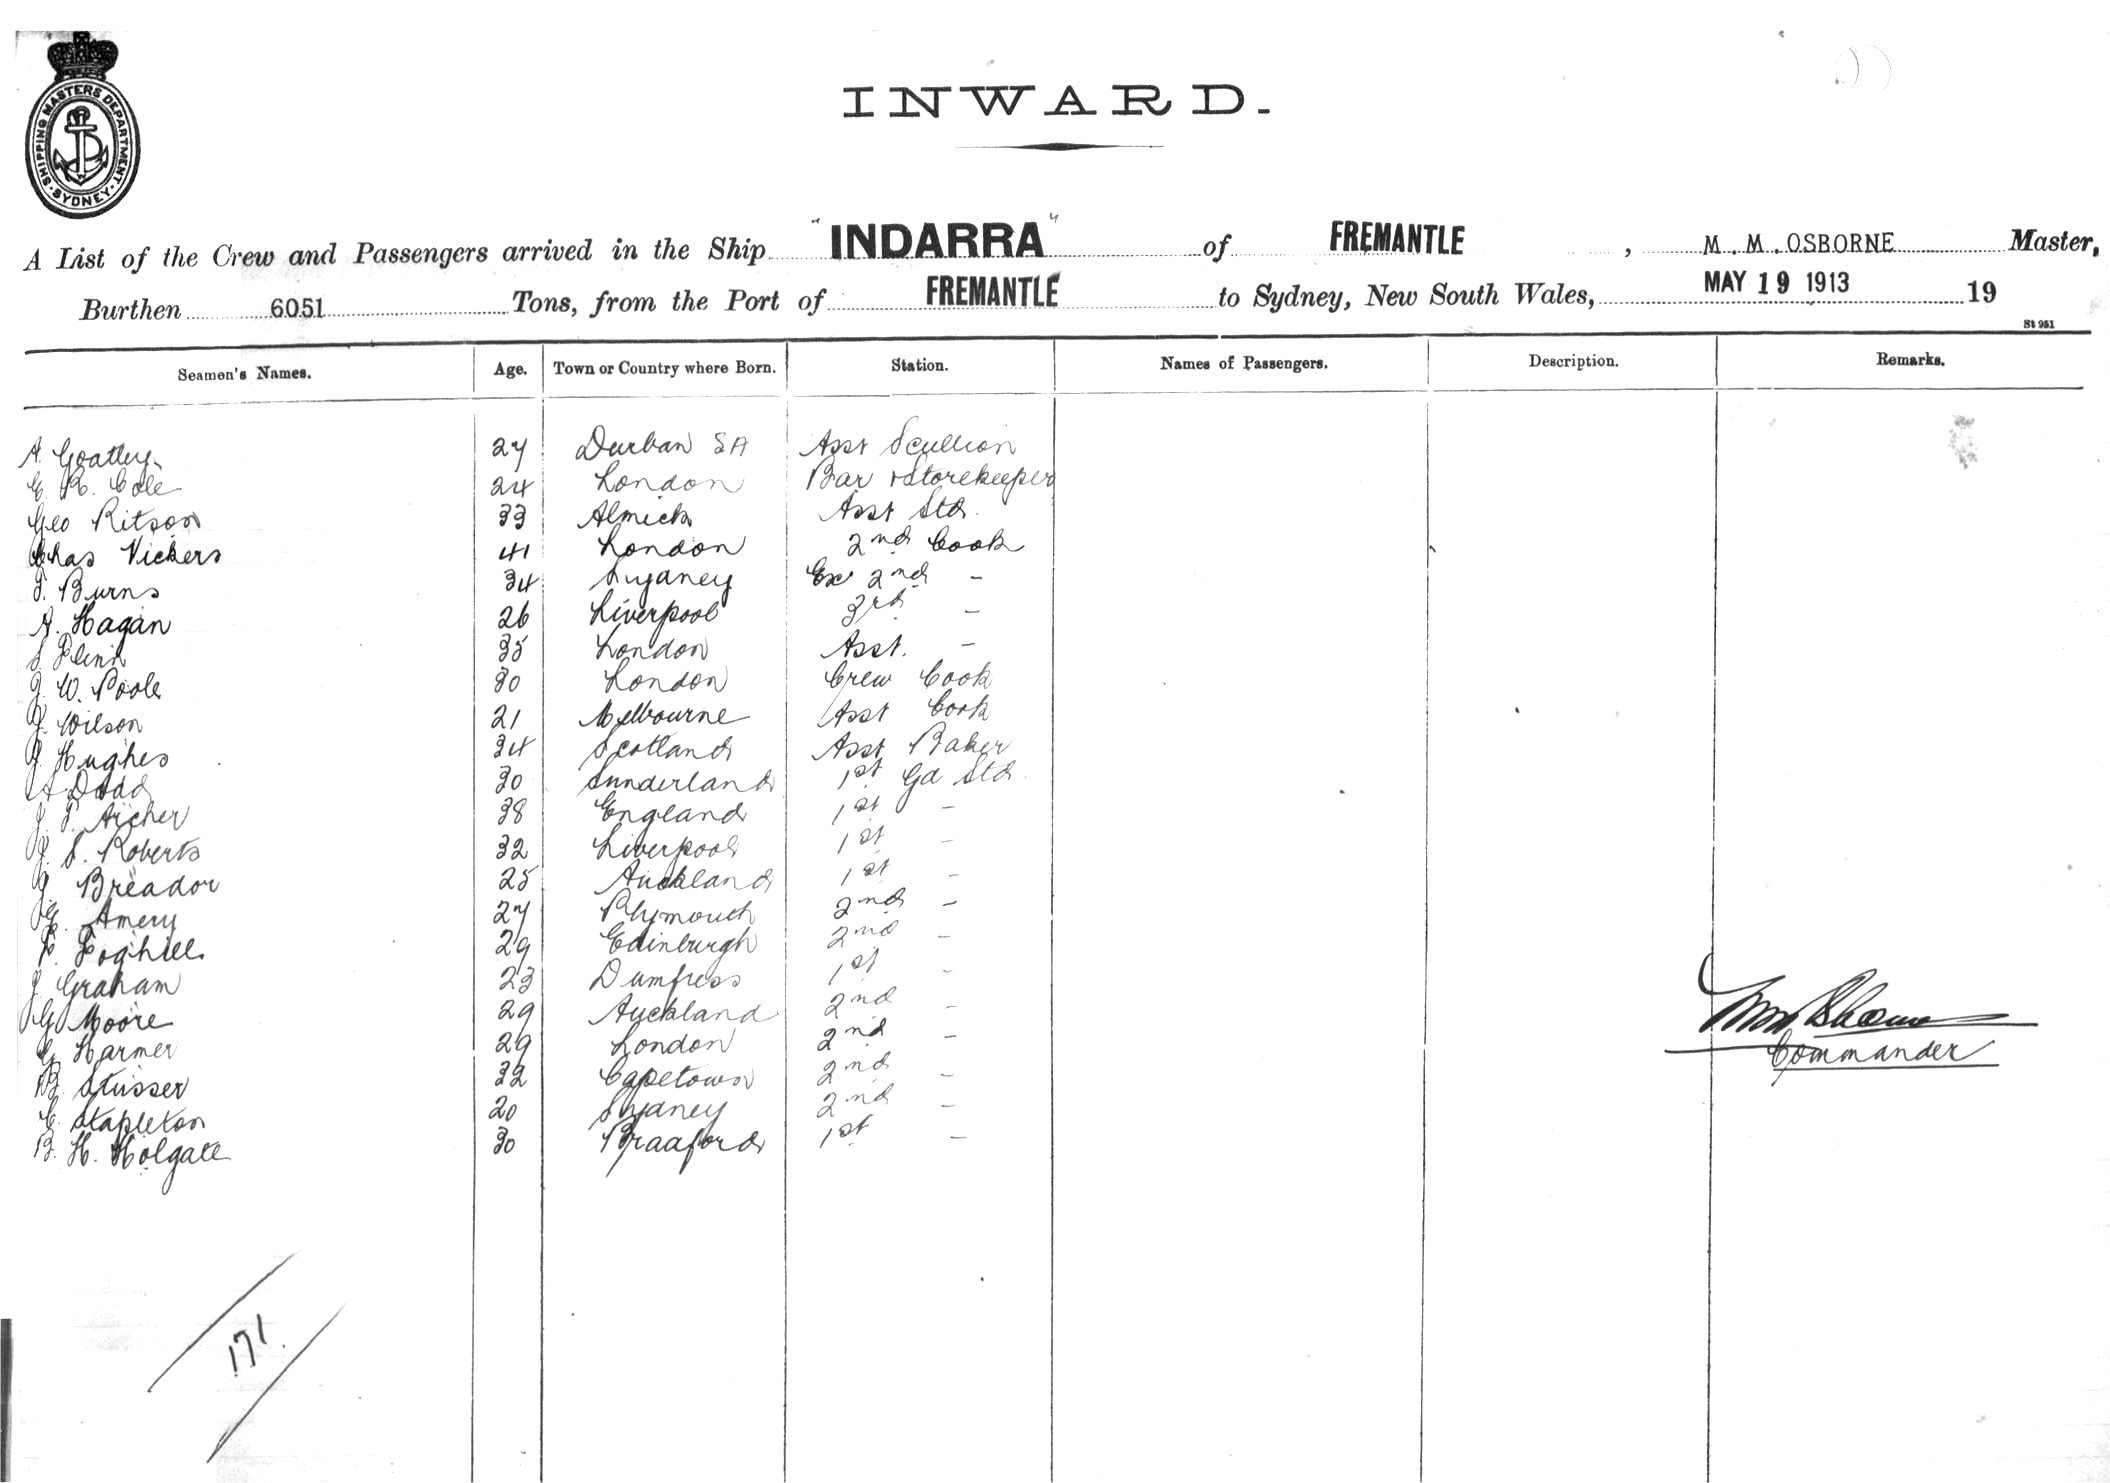 SHIPPING MASTERS DEPARTMENT · SYDNEY ·
INWARD.
A List of the Crew and Passengers arrived in the Ship "INDARRA" of FREMANTLE, M. M. OSBORNE Master,
Burthen 6051 Tons, from the Port of FREMANTLE to Sydney, New South Wales, MAY 19 1913 19
St 951
Seamen's Names. Age. Town or Country where Born. Station. Names of Passengers. Description. Remarks.
A. Goatley 27 Durban SA Asst Scullion
E. R. Cole 24 London Bar & Storekeeper
Geo Ritson 33 Alnick Asst Std.
Chas Vickers 41 London 2nd Cook
T. Burns 34 Sydney Ex 2nd -
A. Hagan 26 Liverpool 3rd -
S Flinn 35 London Asst. -
J. W. Poole 30 London Crew Cook
J. Wilson 21 Melbourne Asst Cook
J Hughes 34 Scotland Asst Baker
A Dodd 30 Sunderland 1st Gd Std.
J. T. Archer 38 England 1st -
J. S. Roberts 32 Liverpool 1st -
J. Breador 25 Auckland 1st -
G. Amery 27 Plymouth 2nd -
F. Foghill. 29 Edinburgh 2nd -
J. Graham 23 Dumfress 1st -
G Moore 29 Auckland 2nd -
G Harmer 29 London 2nd -
B. Stusser 32 Capetown 2nd -
C. Stapleton 20 Sydney 2nd -
B. H. Holgate 30 Bradford 1st -
Commander
171.